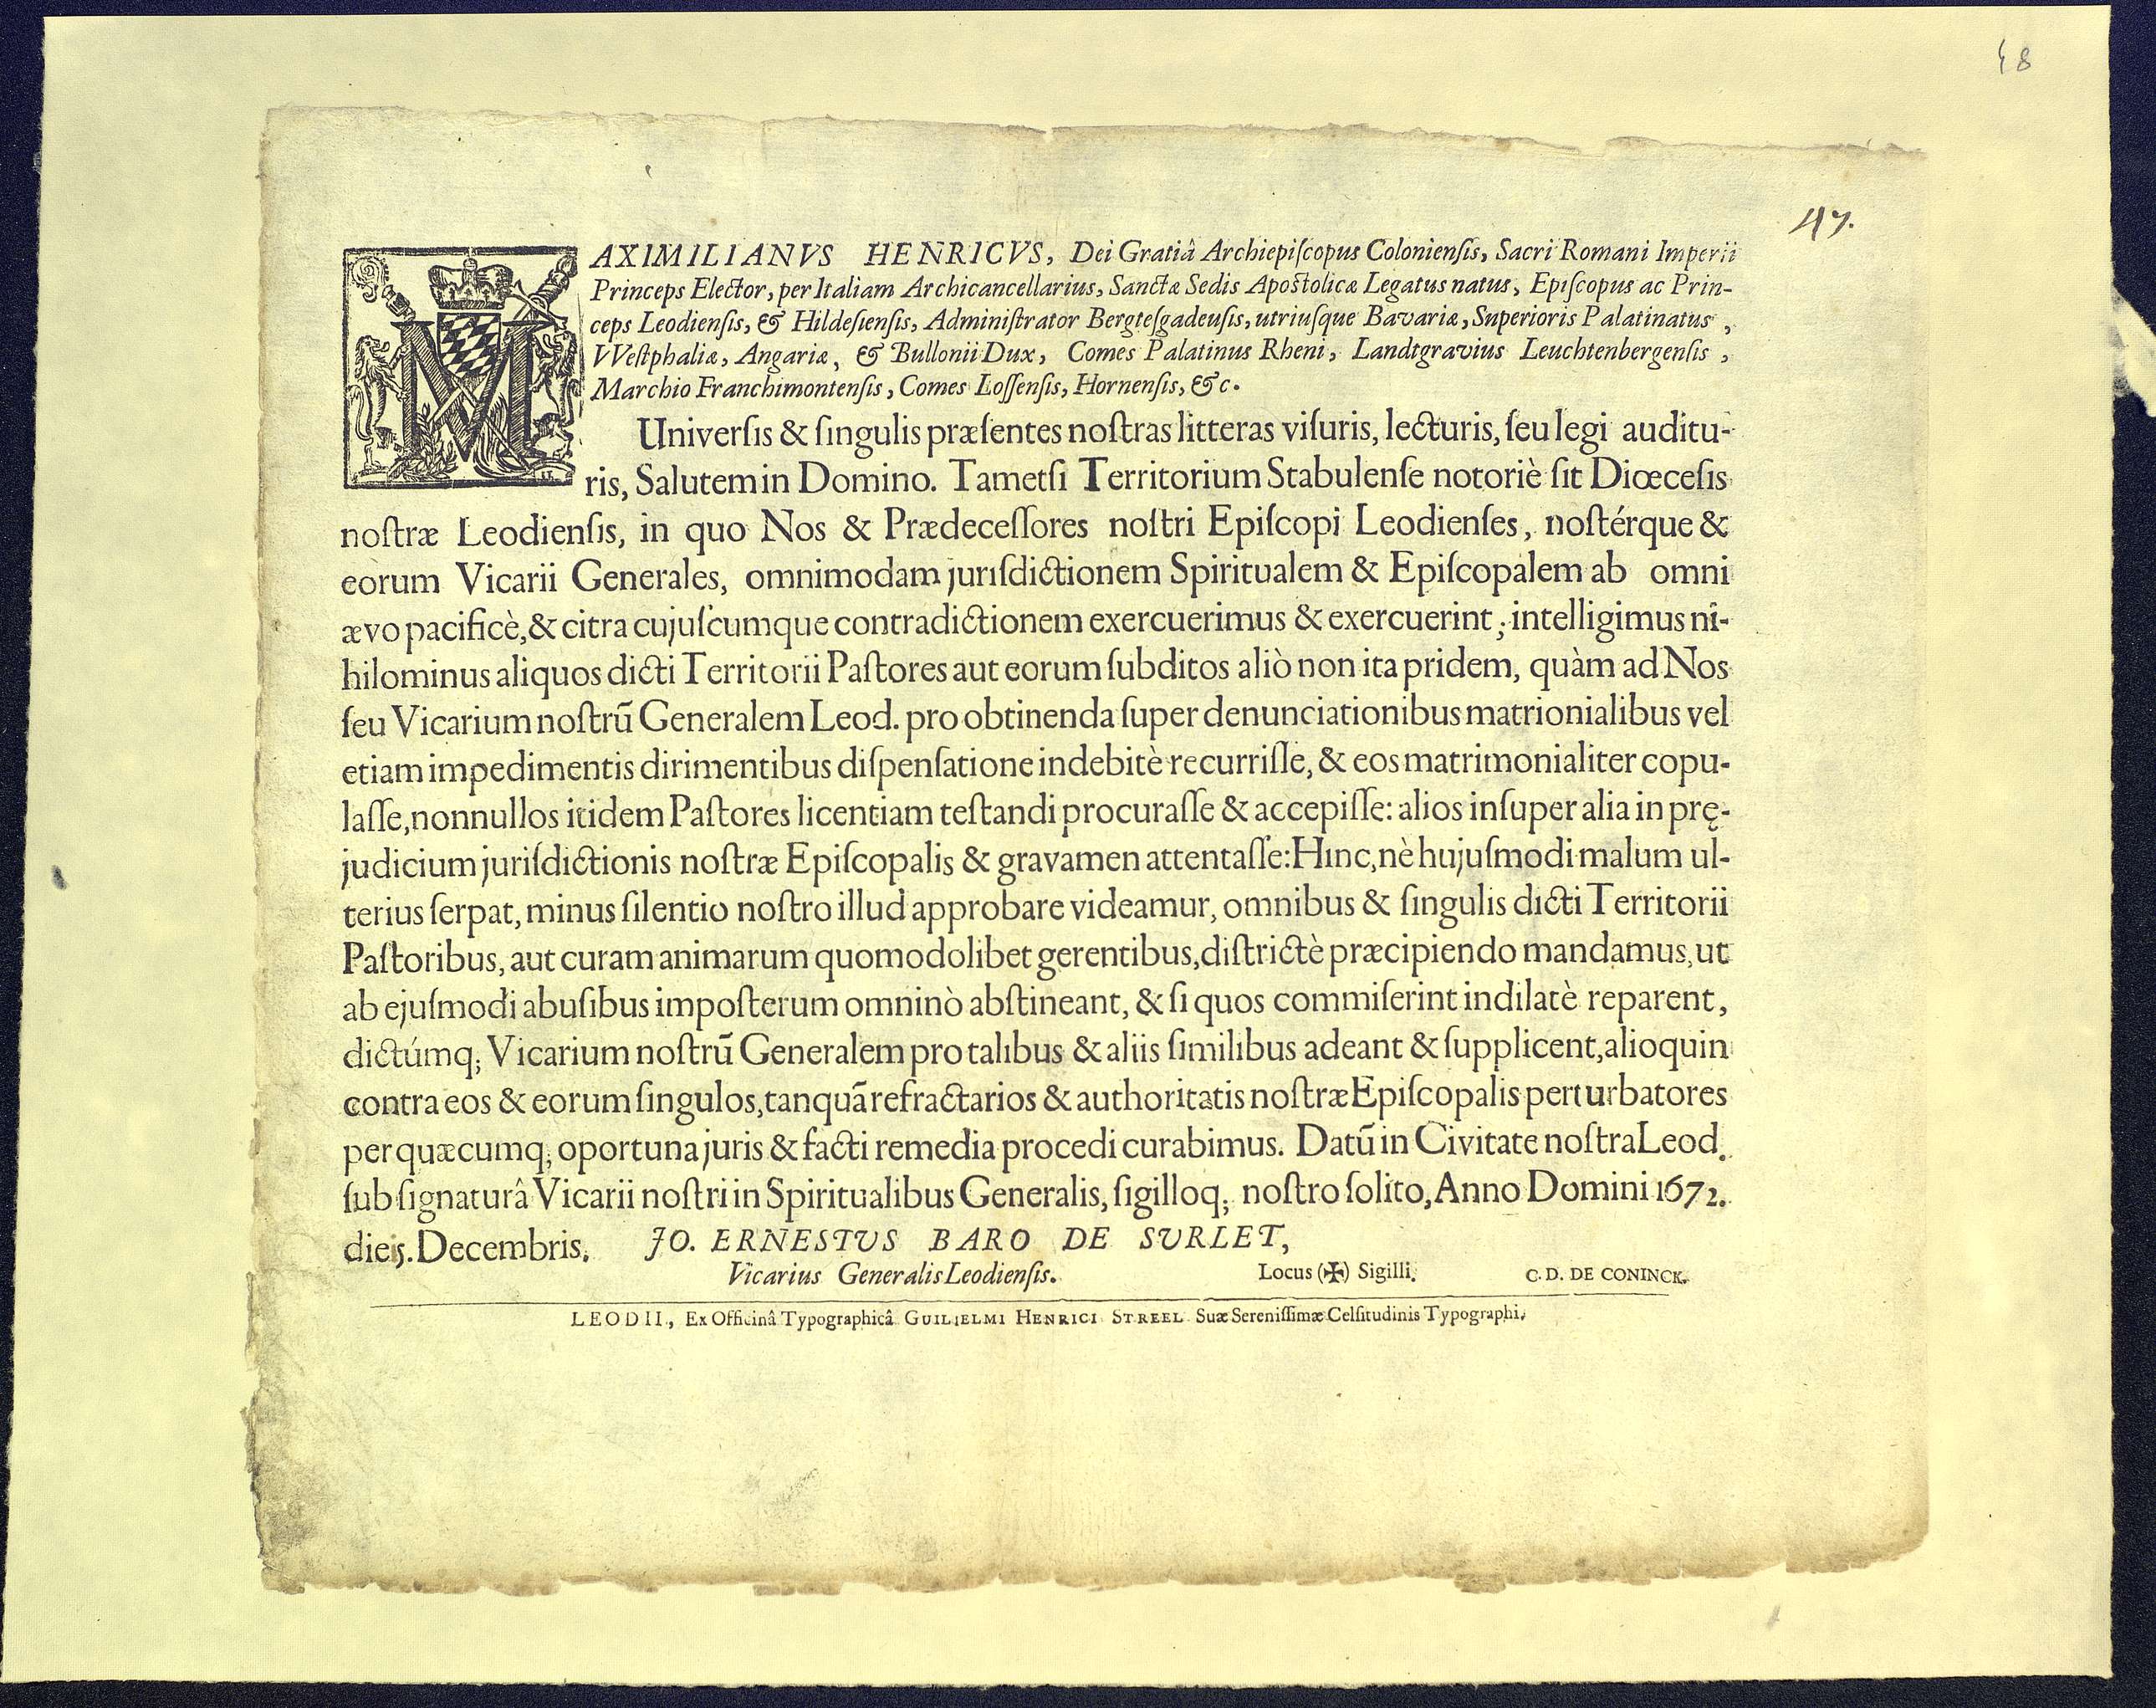 48
47.
MAXIMILIANVS HENRICVS, Dei Gratiâ Archiepiſcopus Colonienſis, Sacri Romani Imperii
Princeps Elector, per Italiam Archicancellarius, Sanctæ Sedis Apoſtolicæ Legatus natus, Epiſcopus ac Prin-
ceps Leodienſis, & Hildeſienſis, Adminiſtrator Bergteſgadeuſis, utriuſque Bavariæ, Superioris Palatinatus,
VVeſtphaliæ, Angariæ, & Bullonii Dux, Comes Palatinus Rheni, Landtgravius Leuchtenbergenſis,
Marchio Franchimontenſis, Comes Loſſenſis, Hornenſis, &c.
Univerſis & ſingulis præſentes noſtras litteras viſuris, lecturis, ſeu legi auditu-
ris, Salutem in Domino. Tametſi Territorium Stabulenſe notoriè ſit Diœceſis
noſtræ Leodienſis, in quo Nos & Prædeceſſores noſtri Epiſcopi Leodienſes, noſtérque &
eorum Vicarii Generales, omnimodam juriſdictionem Spiritualem & Epiſcopalem ab omni
ævo pacificè, & citra cujuſcumque contradictionem exercuerimus & exercuerint; intelligimus ni-
hilominus aliquos dicti Territorii Paſtores aut eorum ſubditos aliò non ita pridem, quàm ad Nos
ſeu Vicarium noſtrũ Generalem Leod. pro obtinenda ſuper denunciationibus matrionialibus vel
etiam impedimentis dirimentibus diſpenſatione indebitè recurriſſe, & eos matrimonialiter copu-
laſſe, nonnullos itidem Paſtores licentiam teſtandi procuraſſe & accepiſſe: alios inſuper alia in prę-
judicium juriſdictionis noſtræ Epiſcopalis & gravamen attentaſſe: Hinc, nè hujuſmodi malum ul-
terius ſerpat, minus ſilentio noſtro illud approbare videamur, omnibus & ſingulis dicti Territorii
Paſtoribus, aut curam animarum quomodolibet gerentibus, diſtrictè præcipiendo mandamus, ut
ab ejuſmodi abuſibus impoſterum omninò abſtineant, & ſi quos commiſerint indilatè reparent,
dictúmq; Vicarium noſtrũ Generalem pro talibus & aliis ſimilibus adeant & ſupplicent, alioquin
contra eos & eorum ſingulos, tanquã refractarios & authoritatis noſtræ Epiſcopalis perturbatores
per quæcumq; oportuna juris & facti remedia procedi curabimus. Datũ in Civitate noſtra Leod.
ſub ſignaturâ Vicarii noſtri in Spiritualibus Generalis, ſigilloq; noſtro ſolito, Anno Domini 1672.
die 5. Decembris. JO. ERNESTUS BARO DE SURLET,
Vicarius Generalis Leodienſis. Locus (✠) Sigilli. C. D. DE CONINCK.
LEODII, Ex Officinâ Typographicâ GUILIELMI HENRICI STREEL Suæ Sereniſſimæ Celſitudinis Typographi.